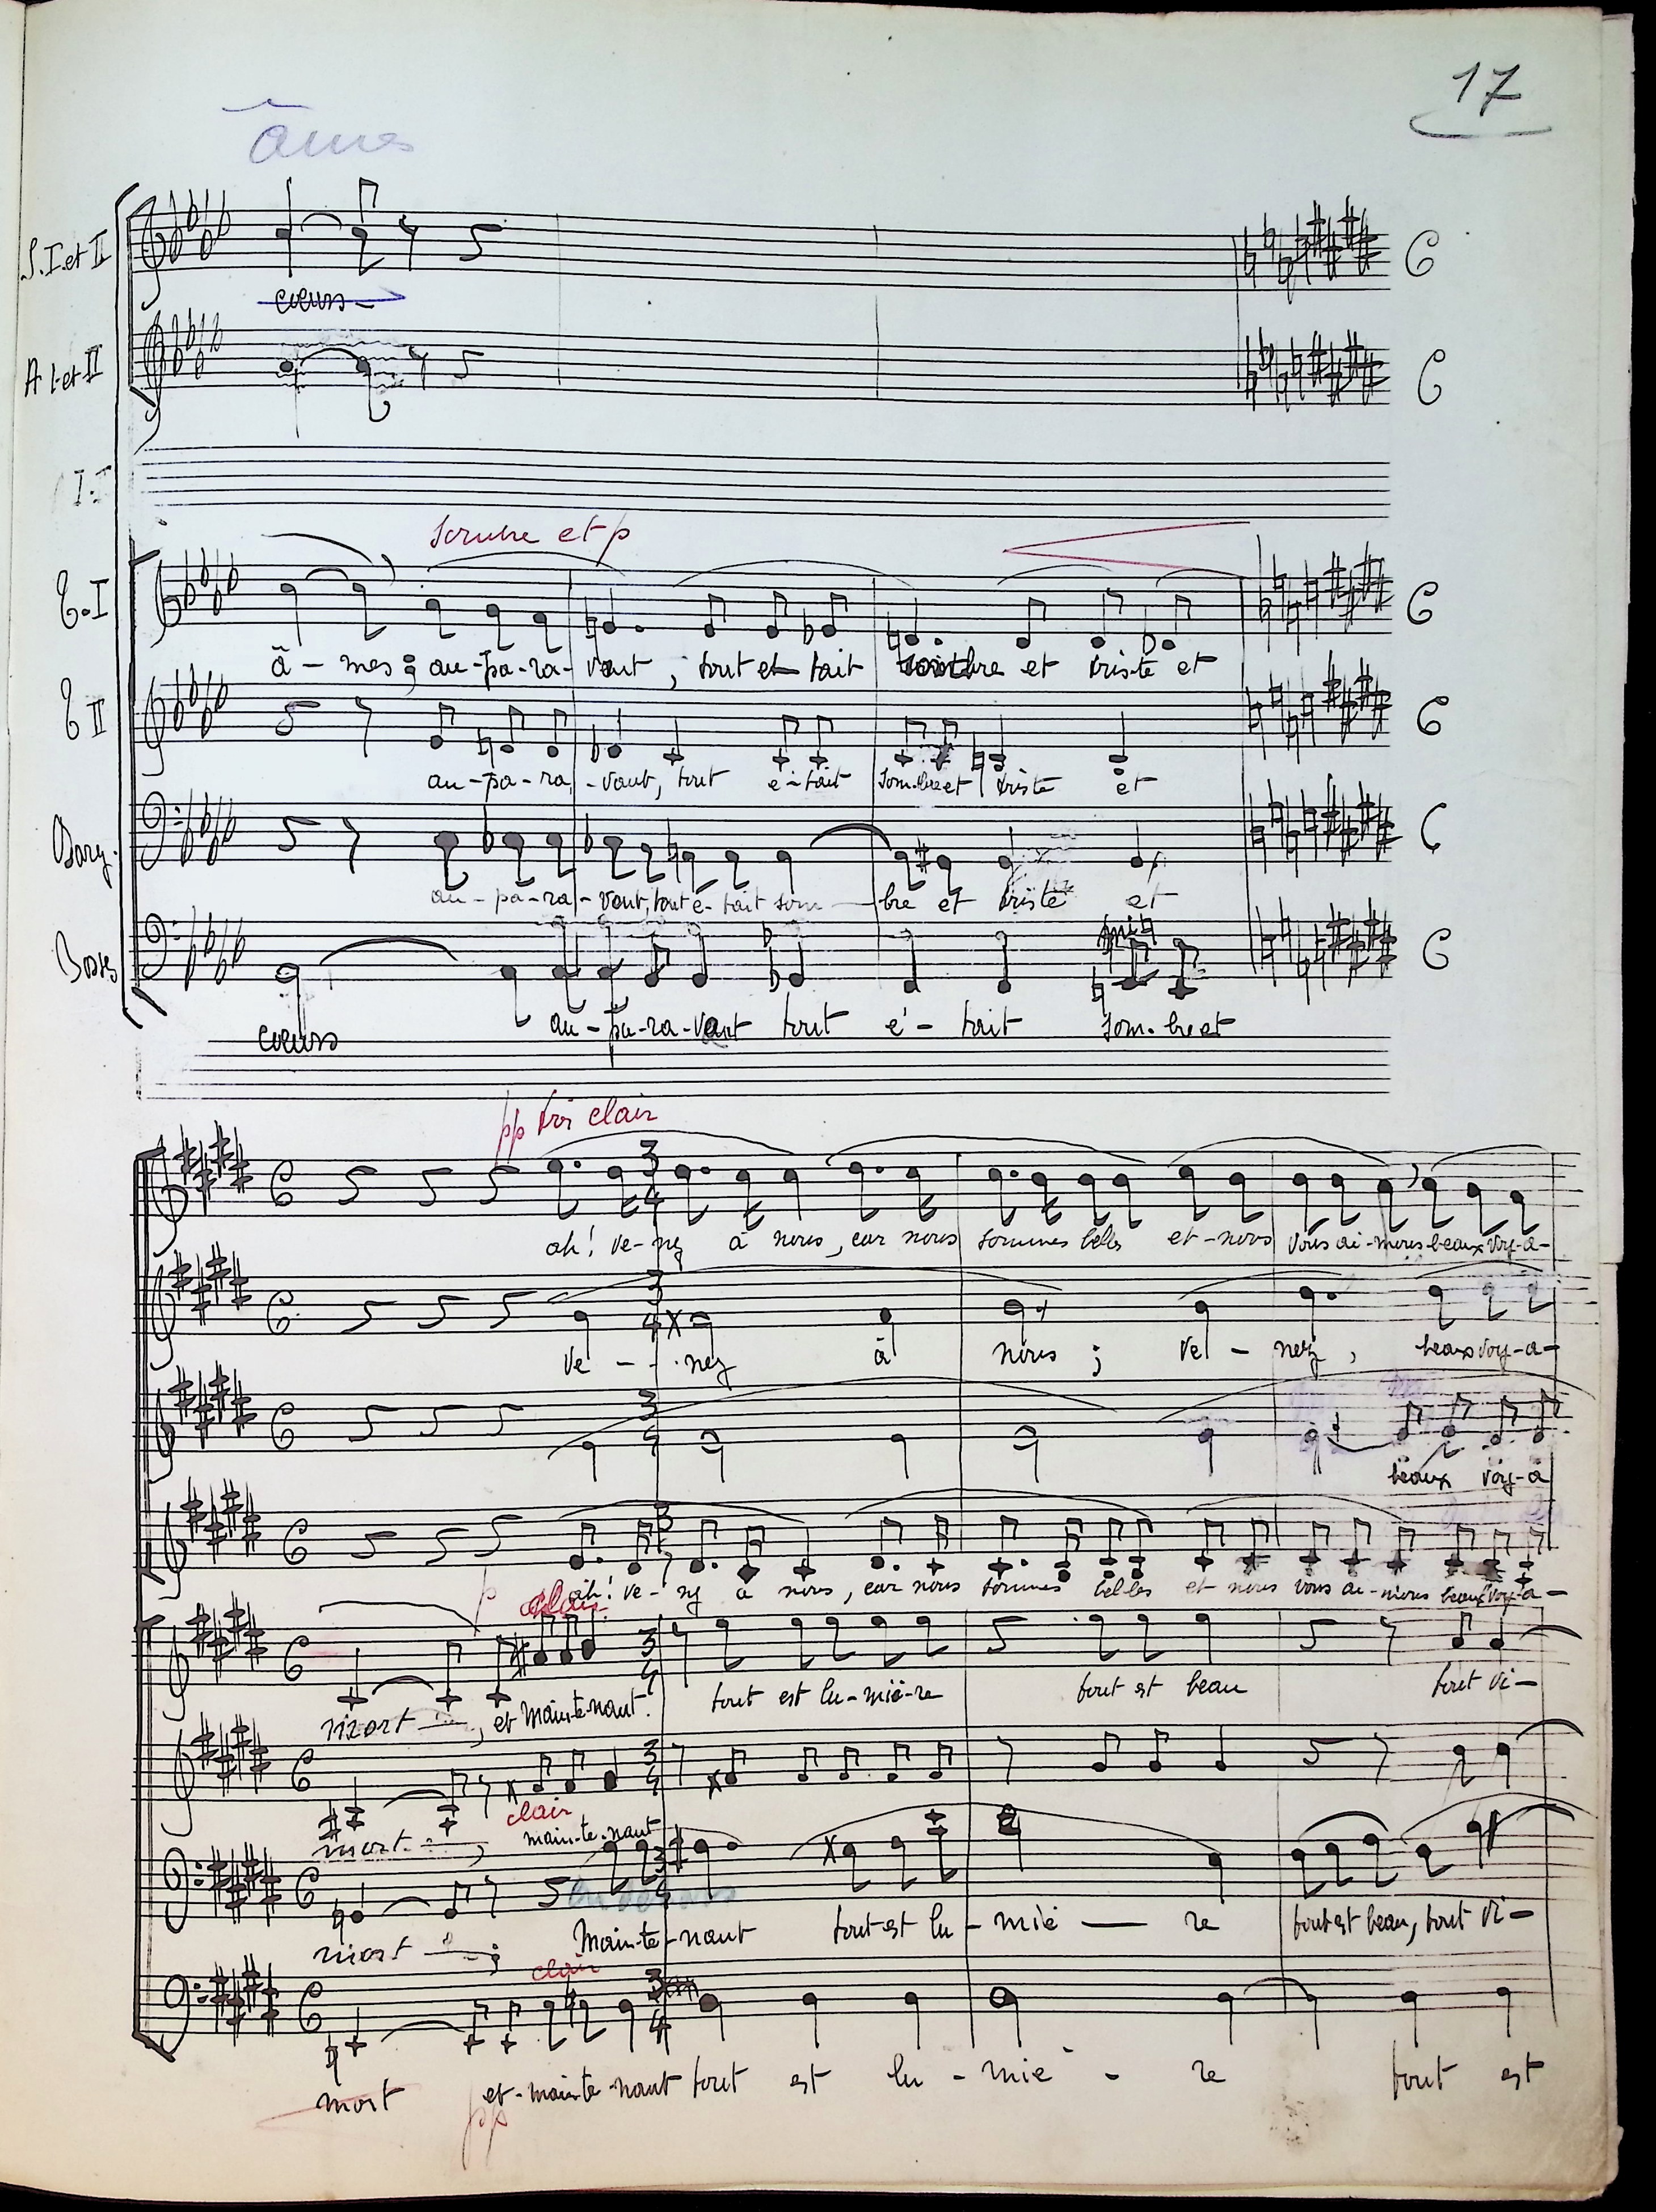 17
âmes
S. I. et II
cœurs -
A I. et II
sombre et p
T. I
â - mes ; au - pa - ra - vant , tout et - tait sombre et tris - te et
T II
au - pa - ra - vant, tout é - tait som - bre et triste et
Bary.
au - pa - ra - vant, tout é - tait som - bre et triste et
Basses
cœurs au - pa - ra - vant tout é - tait som - bre et
pp très clair
C 3 4
ah ! ve - nez à nous, car nous sommes belles et - nous vous ai - mons beaux voy - a -
C 3 4
ve - - nez à nous ; ve - nez , beaux voy - a -
C 3 4
beaux voy - a
C 3
ah ! ve - nez à nous , car nous sommes belles et nous vous ai - mons beaux voy - a -
p clair
C 3 4
mort , et main - te - nant . tout est lu - miè - re tout est beau tout vi -
C 3 4
clair
mort , main - te - nant
C 3 4
mort ; Main - te - nant tout est lu - miè - re tout est beau, tout vi -
clair
C 3 4
mort et - main - te - nant tout est lu - miè - re tout est
pp